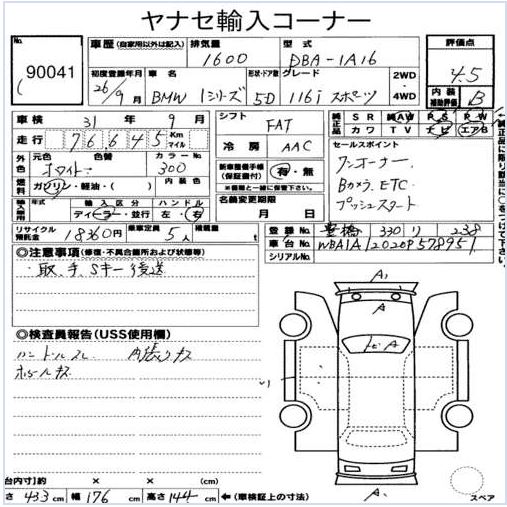 ヤナセ輸入コーナー
No. 90041
車歴 (自家用以外は記入) 排気量 1600 型式 DBA-1A16 評価点 4.5
初度登録年月 26/9月 車名 BMW 1シリーズ 形状・ドア数 5D グレード 116i スポーツ 2WD・4WD 内装補助評価 B
車検 31年 9月 シフト FAT 純正品 SR 純AW PS PW
カワ TV ナビ エアB
走行 76645 Km マイル 冷房 AAC セールスポイント
外色 元色 ホワイト 色替 カラーNo. 300 新車整備手帳(保証書付) 有・無 ワンオーナー
燃料 ガソリン・軽油・( ) 内装色 ※書類と一緒に保管下さい。 Bカメラ ETC
輸入車用 年式 輸入区分 ディーラー・並行 ハンドル 左・右 名義変更期限 月 日 プッシュスタート
リサイクル預託金 18360円 乗車定員 5人 積載量 t 登録No. 豊橋 330 リ 238
車台No. WBA1A12020P578951
シリアルNo.
◎注意事項(修復・不具合箇所および状態等)
取、手、Sキー後送
◎検査員報告(USS使用欄)
ハンドルスレ 内張りキズ
ホイールキズ
A1
A
トビA
A1
台内寸) × × (cm)
さ 433cm 幅 176cm 高さ 144cm ←(車検証上の寸法) スペア